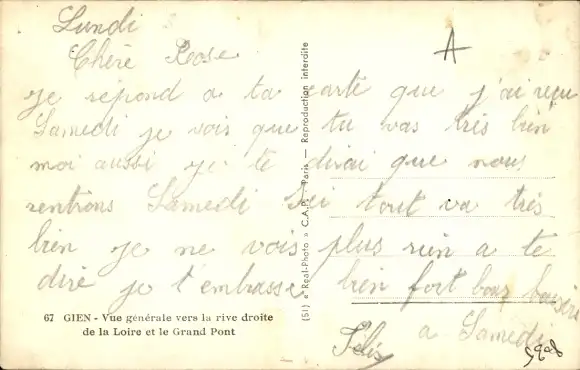 Lundi
A
Chère Roose
Je repond a ta carte que j'ai reçu
Samedi je vois que tu vas très bien
moi aussi je te dirai que nous
rentrons Samedi Ici tout va très
bien je ne vois plus rien a te
dire je t'embrasse bien fort bons baisers
a Samedi
Félix
67 GIEN - Vue générale vers la rive droite
de la Loire et le Grand Pont
(51) « Réal-Photo » C.A.P. - Paris — Reproduction interdite